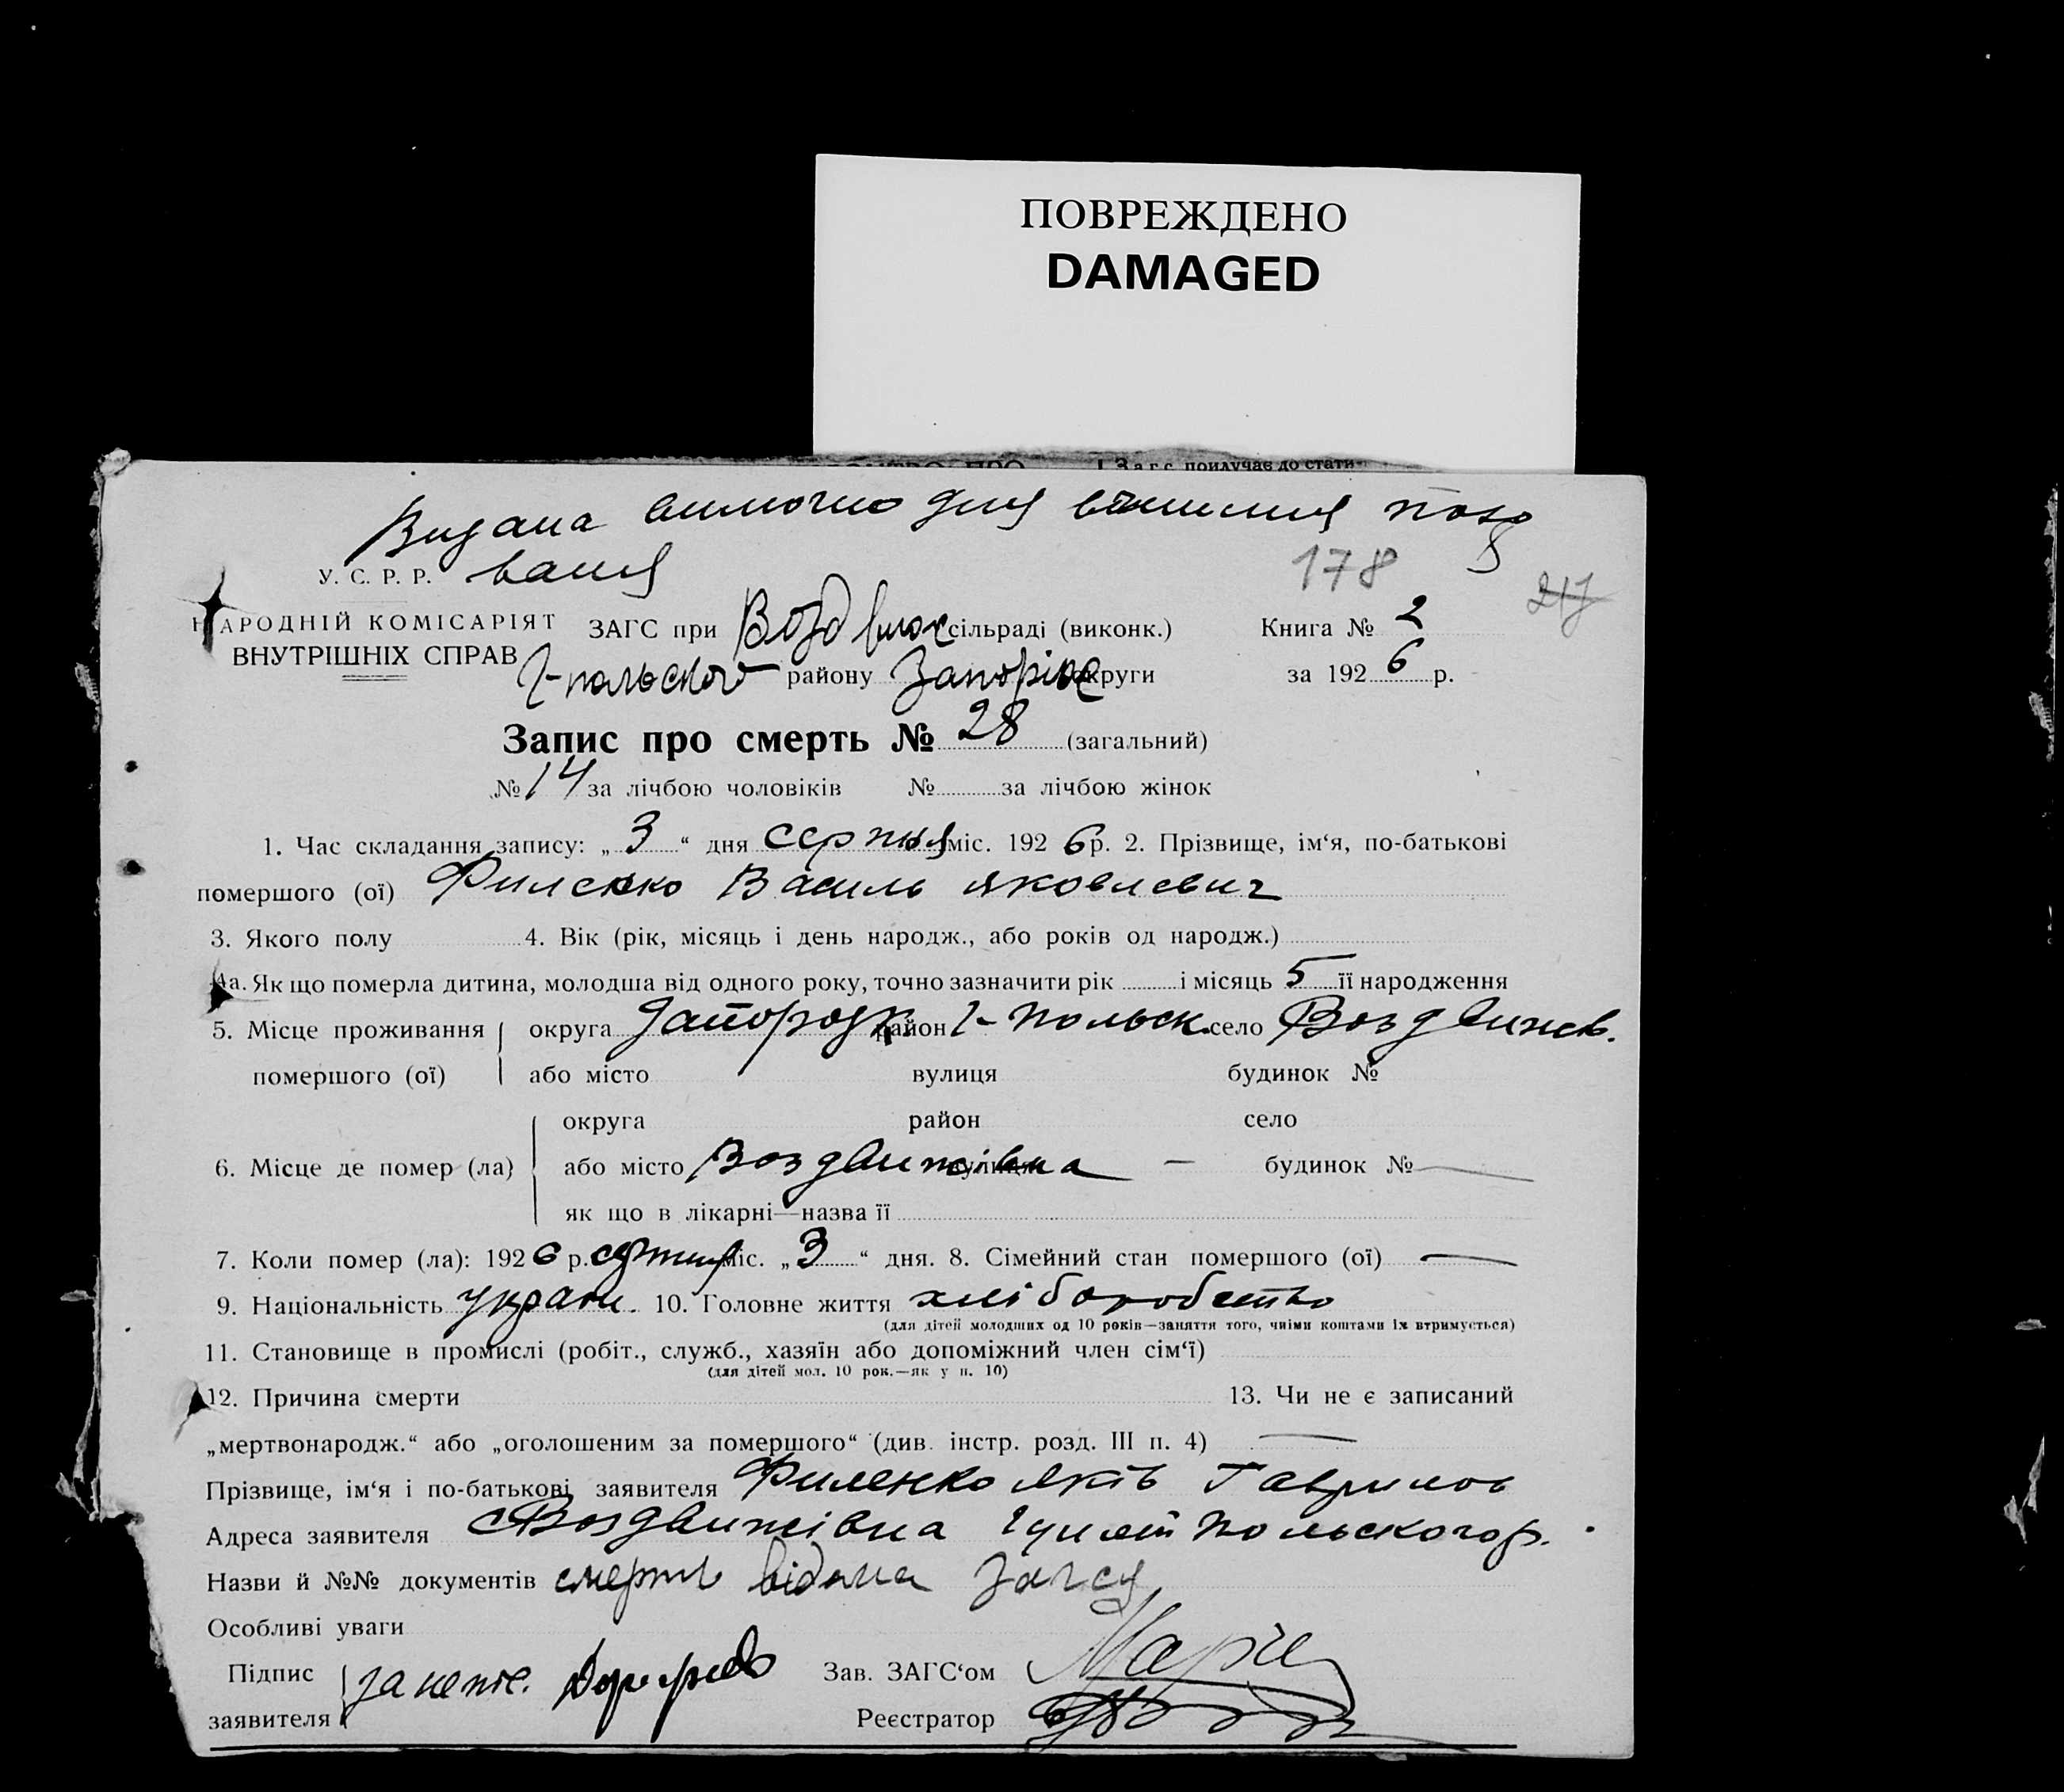 ПОВРЕЖДЕНО
DAMAGED
Видана для
вання
178
У. С. Р. Р.
НАРОДНІЙ КОМІСАРІЯТ
ВНУТРІШНІХ СПРАВ
ЗАГС при Воздвиж сільраді (виконк.) Книга № 2
Г-польского району Запоріж округи за 1926 р.
Запис про смерть № 28 (загальний)
№ 14 за лічбою чоловіків № за лічбою жінок
1. Час складання запису: „3“ дня серпня міс. 1926 р. 2. Прізвище, ім‘я, по-батькові
помершого (ої) Филенко Василь Яковлевич
3. Якого полу 4. Вік (рік, місяць і день народж., або років од народж.)
4а. Як що померла дитина, молодша від одного року, точно зазначити рік і місяць 5 її народження
5. Місце проживання округа район Г-польск. село Воздвижев.
помершого (ої) або місто вулиця будинок №
округа район село
6. Місце де помер (ла) або місто Воздвижівка вулиця — будинок № —
як що в лікарні—назва її
7. Коли помер (ла): 1926 р. серпня міс. „3“ дня. 8. Сімейний стан помершого (ої) —
9. Національність україн. 10. Головне життя хліборобство
(для дітей молодших од 10 років—заняття того, чиїми коштами їх втримується)
11. Становище в промислі (робіт., служб., хазяїн або допоміжний член сім‘ї)
(для дітей мол. 10 рок.—як у п. 10)
12. Причина смерти 13. Чи не є записаний
„мертвонародж.“ або „оголошеним за помершого“ (див. інстр. розд. III п. 4) —
Прізвище, ім‘я і по-батькові заявителя Филенко Яків Гаврилов
Адреса заявителя Воздвижівка Гуляйпольского р.
Назви й №№ документів смерть відома загсу
Особливі уваги
Підпис за непис. Зав. ЗАГС‘ом
заявителя Реєстратор